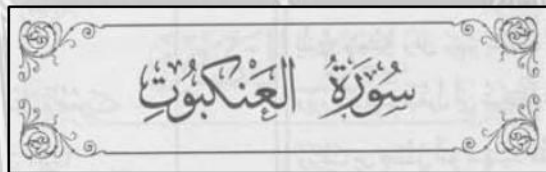 سُورَةُ العَنْكَبُوتِ